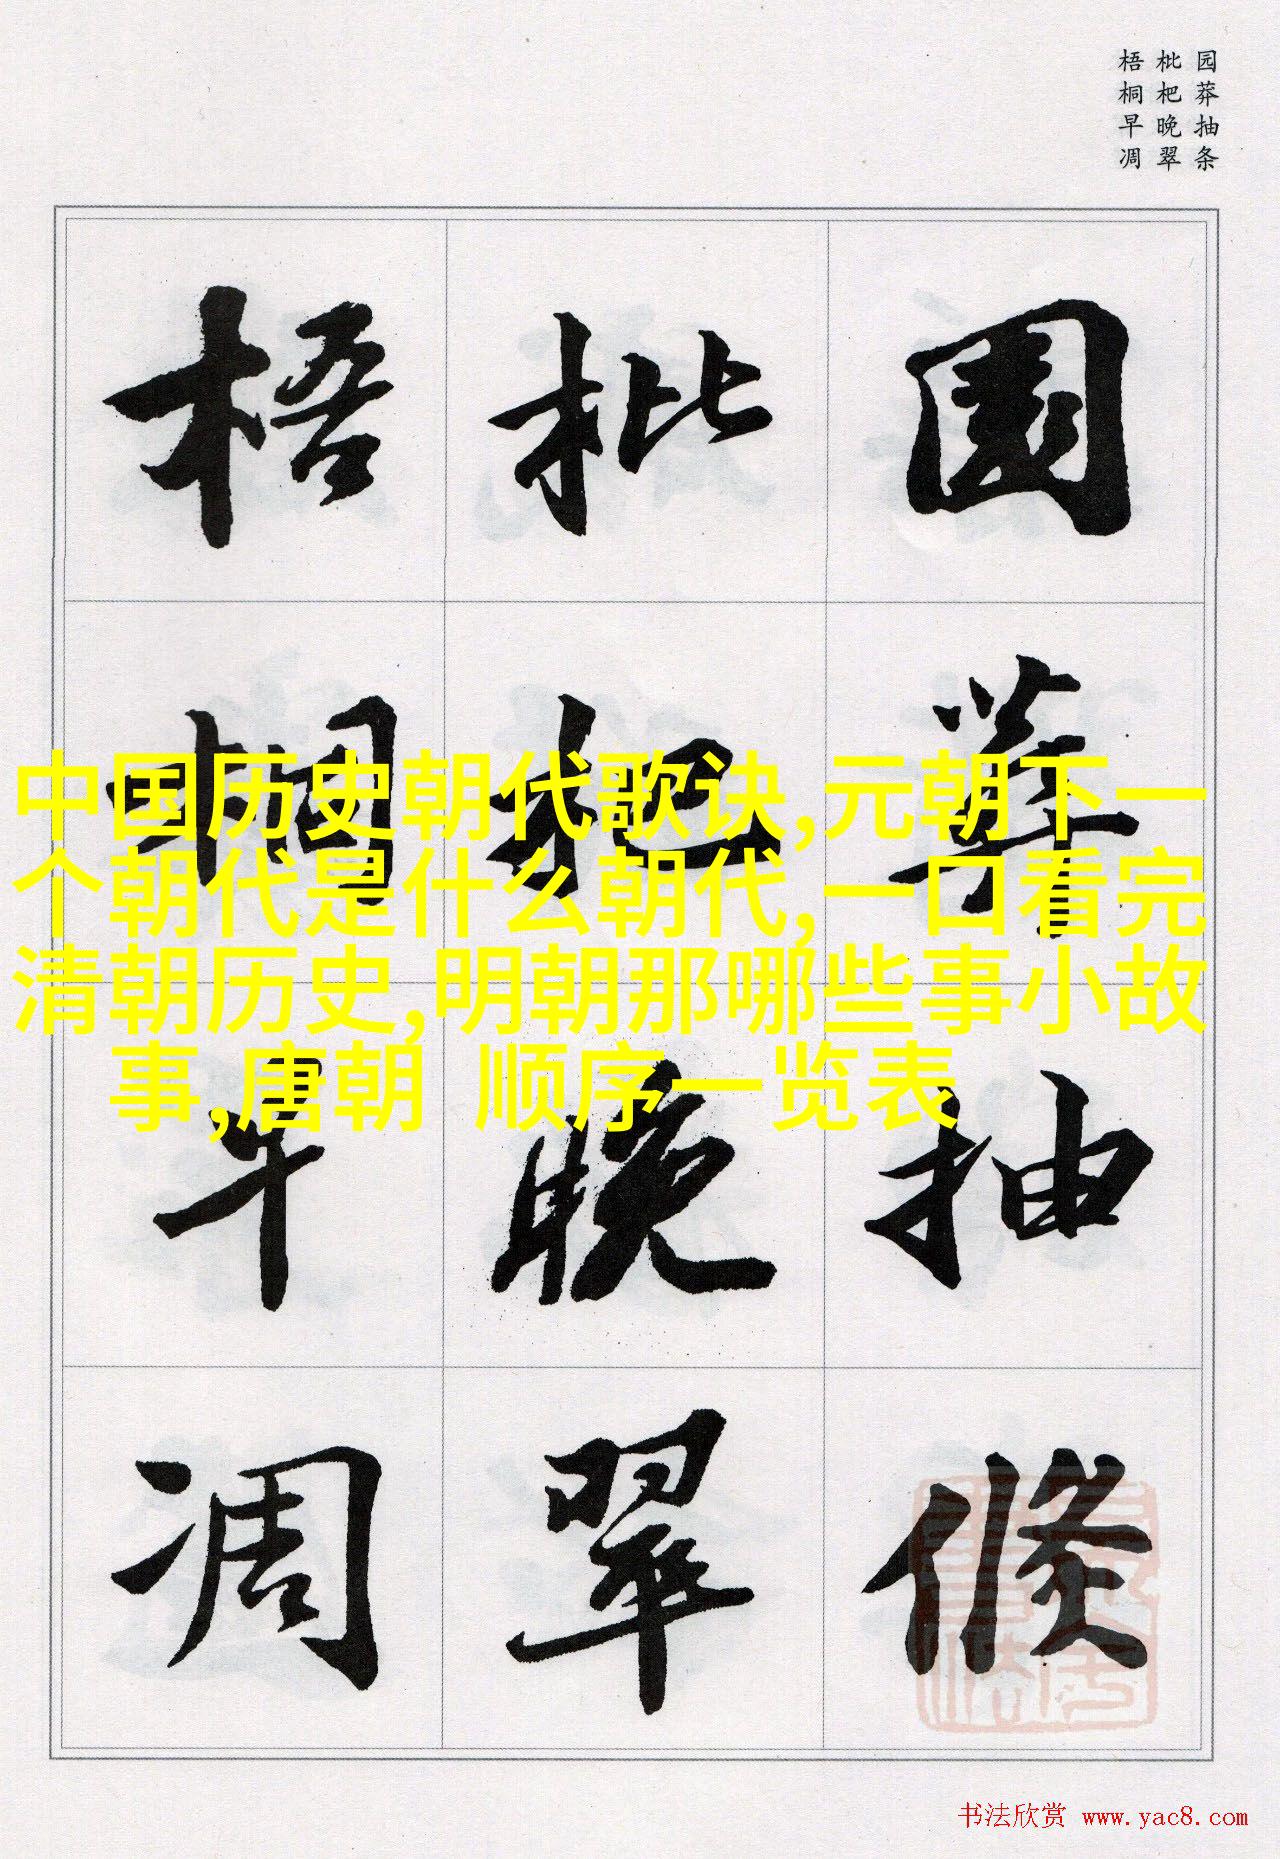 园莽抽条
枇杷晚翠
梧桐早凋
園莽抽條
枇杷晚翠
梧桐早凋
中国历史朝代歌诀,元朝下一
个朝代是什么朝代,一口看完
清朝历史,明朝那哪些事小故
事,唐朝 顺序一览表
书法欣赏 www.yac8.com